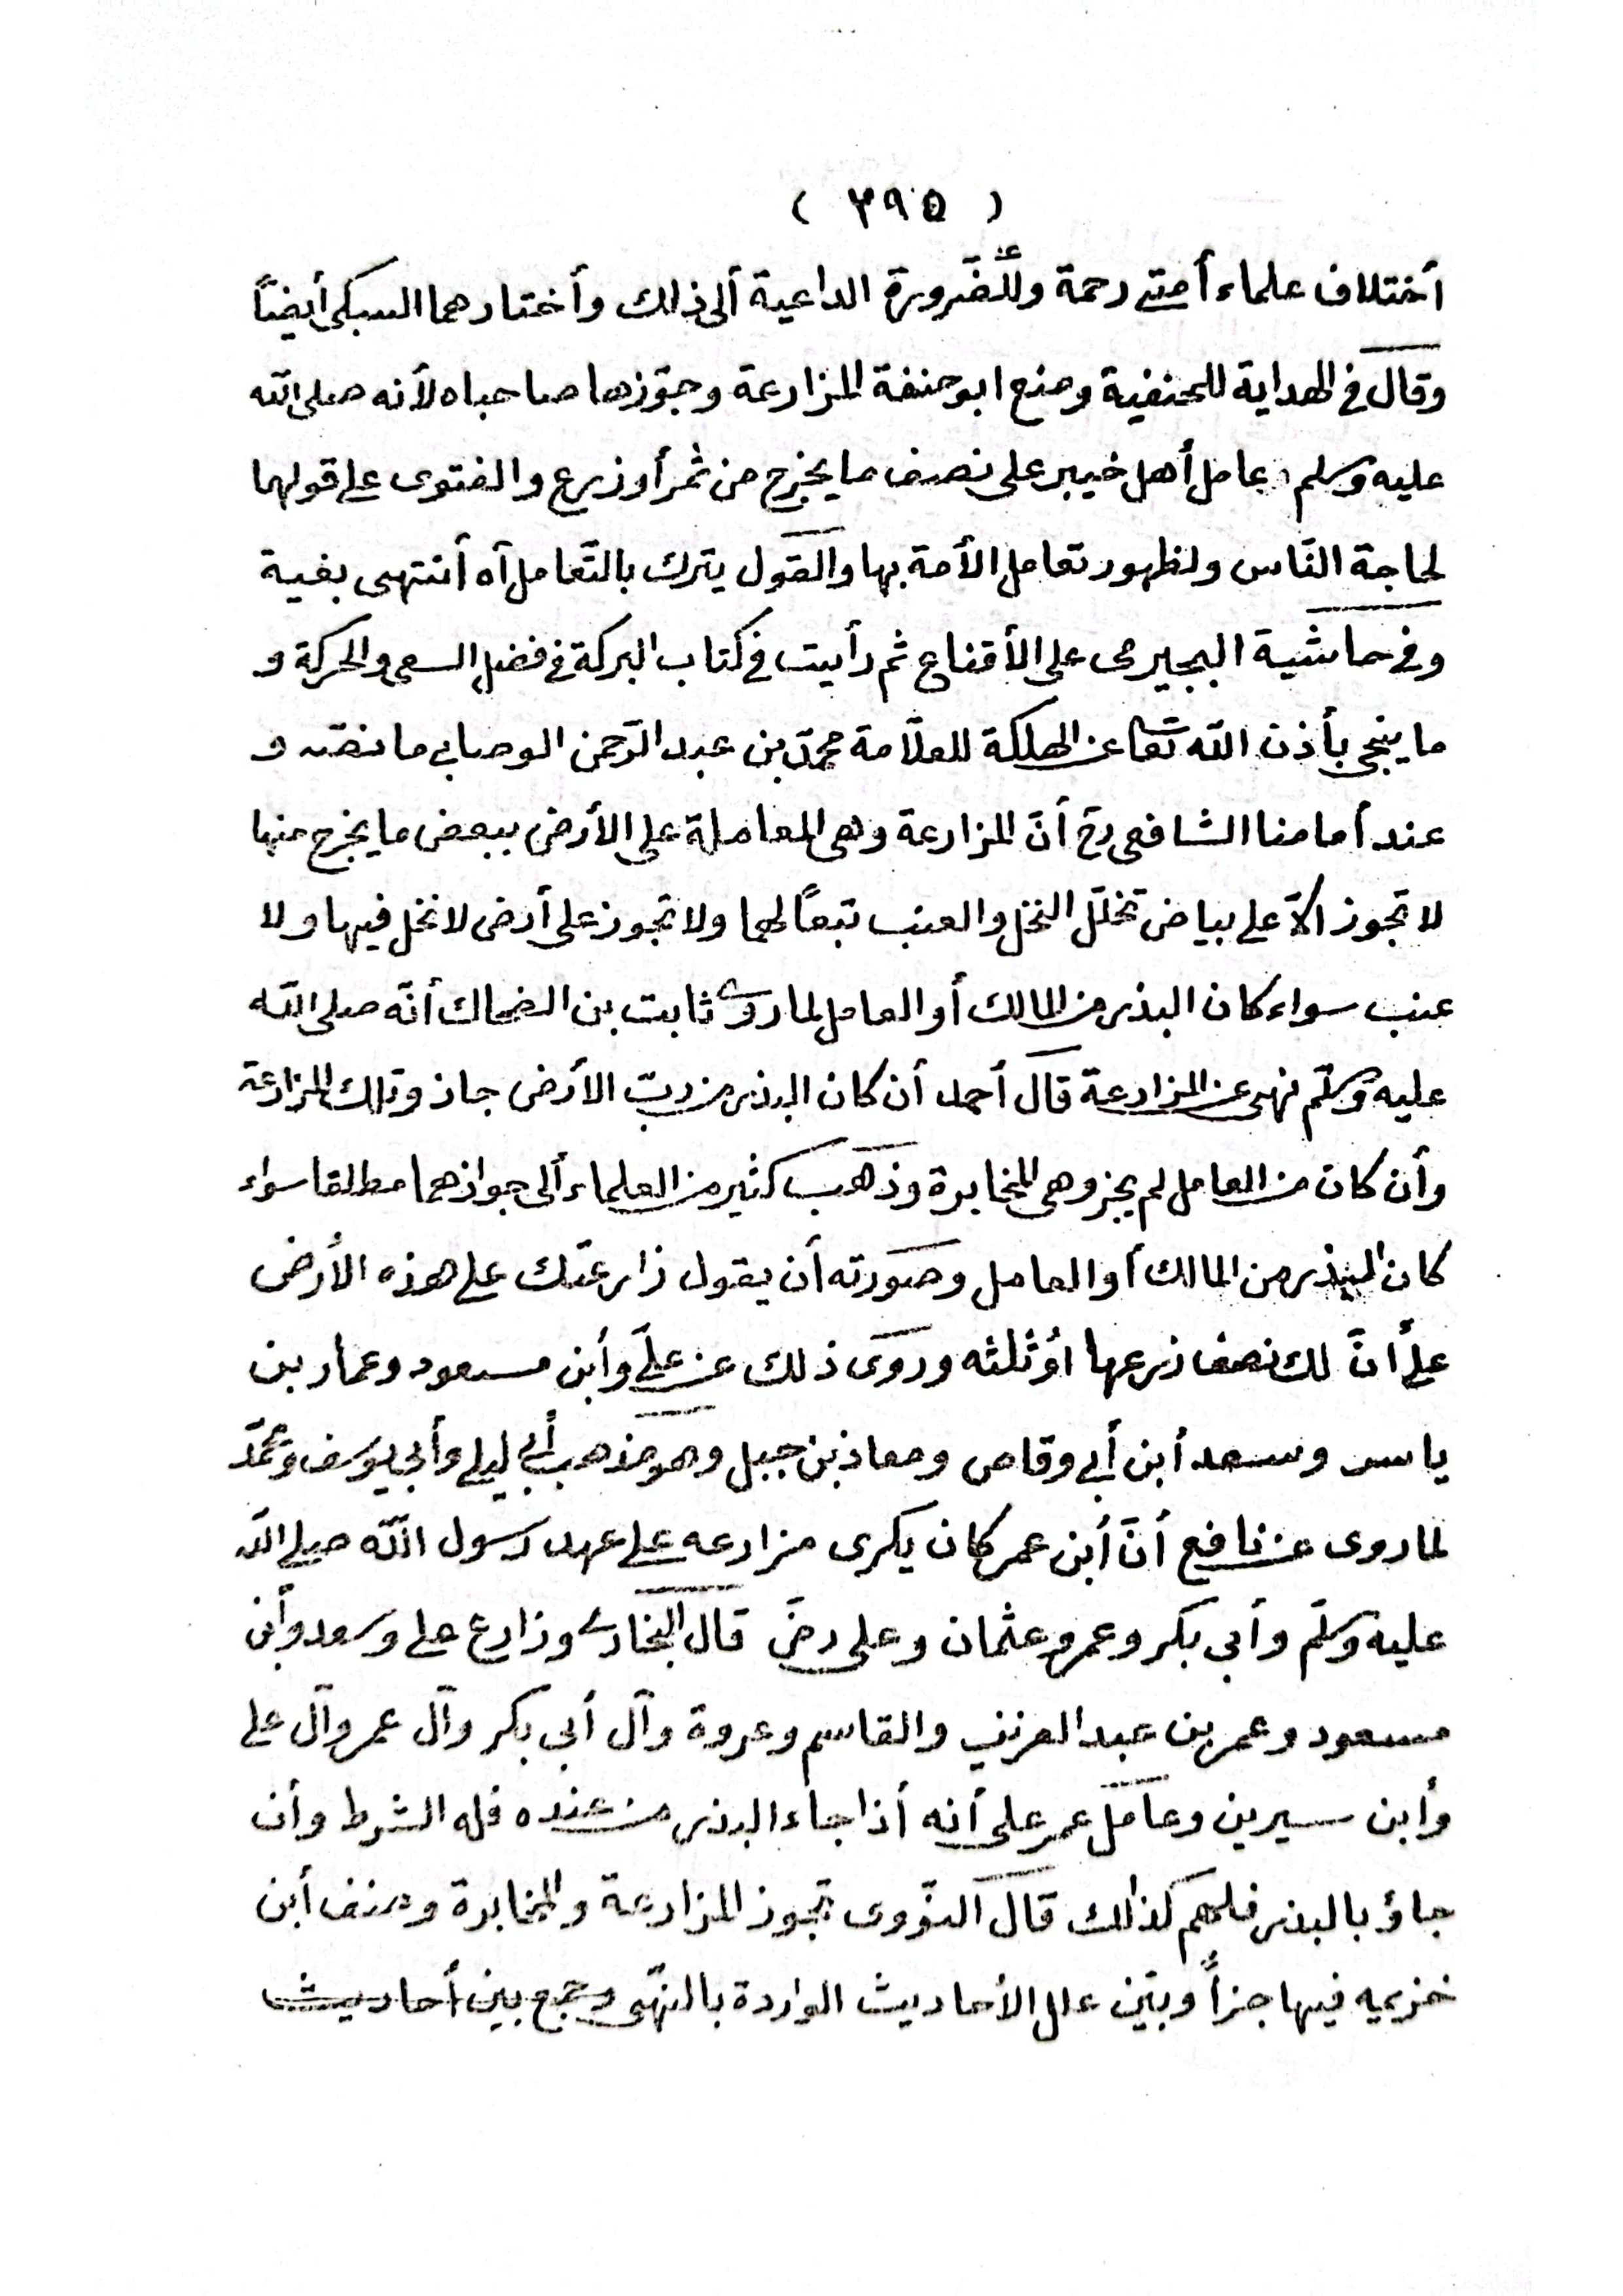 ( ٣٩٥ )
أختلاف علماء أمتي رحمة وللضّرورة الداعية ألى ذلك وأختارهما السبكى أيضاً
وقال في الهداية للحنفية ومنع ابوحنفة المزارعة وجوّزها صاحباه لأنه صلى الله
عليه وسلم عامل أهل خيبر على نصف ما يخرج من ثمر أو زرع والفتوى على قولهما
لحاجة النّاس ولظهور تعامل الأمة بها والقول يترك بالتّعامل آه أنتهى بغية
وفي حاشية البجيرمى على الأقناع ثم رأيت في كتاب البركة في فضل السعى والحركة و
ما ينجى بأذن الله تعا عن الهلكة للعلّامة محمّد بن عبد الرّحمن الوصابي ما نصّه و
عند أمامنا الشافعى رح أنّ المزارعة وهى المعاملة على الأرض ببعض ما يخرج منها
لا تجوز الّا على بياض تخلّل النخل والعنب تبعاً لهما ولا تجوز على أرض لا نخل فيها ولا
عنب سواء كان البذر من المالك أو العامل لما روى ثابت بن الضحاك أنّه صلى الله
عليه وسلّم نهى عن المزارعة قال أحمد أن كان البذر من ربّ الأرض جاز وتلك المزارعة
وأن كان من العامل لم يجز وهى المخابرة وذهب كثير من العلماء ألى جوازهما مطلقا سواء
كان البذر من المالك أو العامل وصورته أن يقول زارعتك على هذه الأرض
على أنّ لك نصف زرعها اوثلثه وروى ذلك عن علىّ وأبن مسعود وعمار بن
ياسر وسعد أبن أبي وقاص ومعاذ بن جبل وهو مذهب أبي ليلى وأبي يوسف ومحمّد
لما روى عن نافع أنّ أبن عمر كان يكرى مزارعه على عهد رسول اللّه صلى الله
عليه وسلّم وأبي بكر وعمر وعثمان وعلى رض قال البخارى وزارع على وسعد وأبن
مسعود وعمر بن عبد العزيز والقاسم وعروة وآل أبي بكر وآل عمر وآل على
وأبن سيرين وعامل عمر على أنه أذا جاء البذر من عنده فله الشرط وأن
جاؤ بالبذر فلهم كذلك قال النّووى تجوز المزارعة والمخابرة وصنف أبن
خزيمه فيها جزأً وبيّن علل الأحاديث الواردة بالنّهى وجمع بين أحاديث